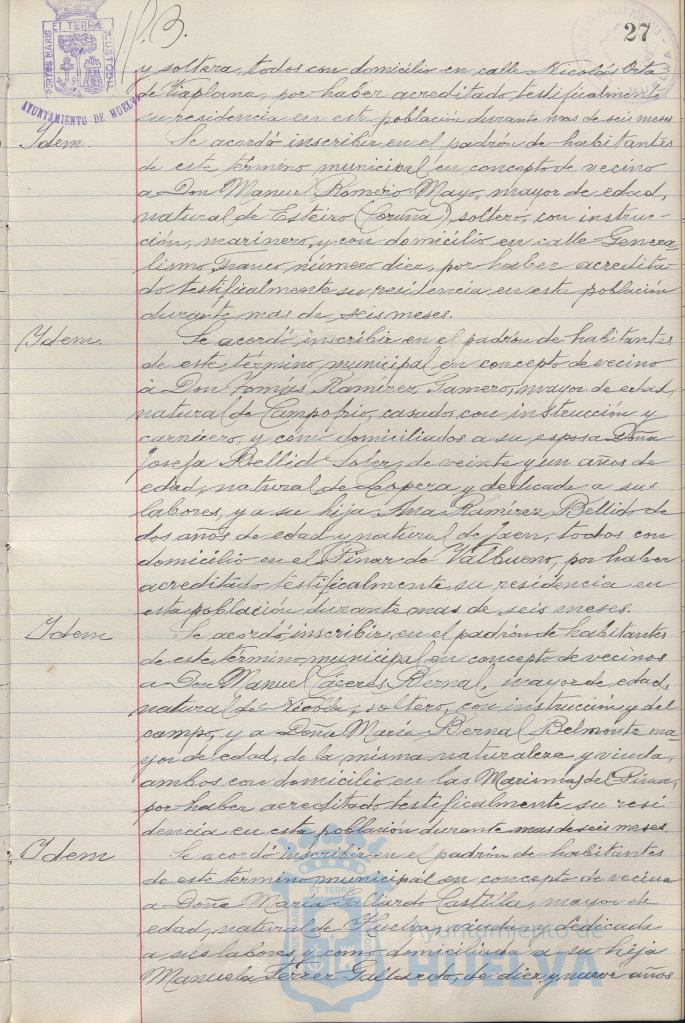 P.B.
27
PORTUS MARIS ET TERRAE CUSTODIA
AYUNTAMIENTO DE HUELVA
y soltera, todos con domicilio en calle Nicolás Orta
de Viaplana, por haber acreditado testificalmente
su residencia en esta población durante mas de seis meses
Idem.
Se acordó inscribir en el padrón de habitantes
de este término municipal en concepto de vecino
a Don Manuel Romero Mayo, mayor de edad,
natural de Esteiro (Coruña), soltero, con instruc-
ción, marinero, y con domicilio en calle Genera-
lismo Franco número diez, por haber acredita-
do testificalmente su residencia en esta población
durante mas de seis meses.
Idem.
Se acordó inscribir en el padrón de habitantes
de este término municipal en concepto de vecino
a Don Tomás Ramirez Famero, mayor de edad,
natural de Campofrio, casado, con instrucción y
carnicero, y como domiciliados a su esposa Doña
Josefa Bellid Soler, de veinte y un años de
edad, natural de Lopera y dedicada a sus
labores, y a su hija Ana Ramirez Bellido de
dos años de edad y natural de Jaen, todos con
domicilio en el Pinar de Valbueno, por haber
acreditado testificalmente su residencia en
esta población durante mas de seis meses.
Idem
Se acordó inscribir en el padrón de habitantes
de este término municipal en concepto de vecinos
a Don Manuel Cáceres Bernal, mayor de edad,
natural de Niebla, soltero, con instrucción y del
campo, y a Doña María Bernal Belmonte ma-
yor de edad, de la misma naturaleza y viuda,
ambos con domicilio en las Marismas del
por haber acreditado testificalmente su resi-
dencia en esta población durante mas de seis meses
Idem
Se acordó inscribir en el padrón de habitantes
de este término municipal en concepto de vecina
a Doña María Gallardo Castilla, mayor de
edad, natural de Huelva, viuda y dedicada
a sus labores, y como domiciliada a su hija
Manuela Ferrer Gallardo, de diez y nueve años
Ayuntamiento de
HUELVA